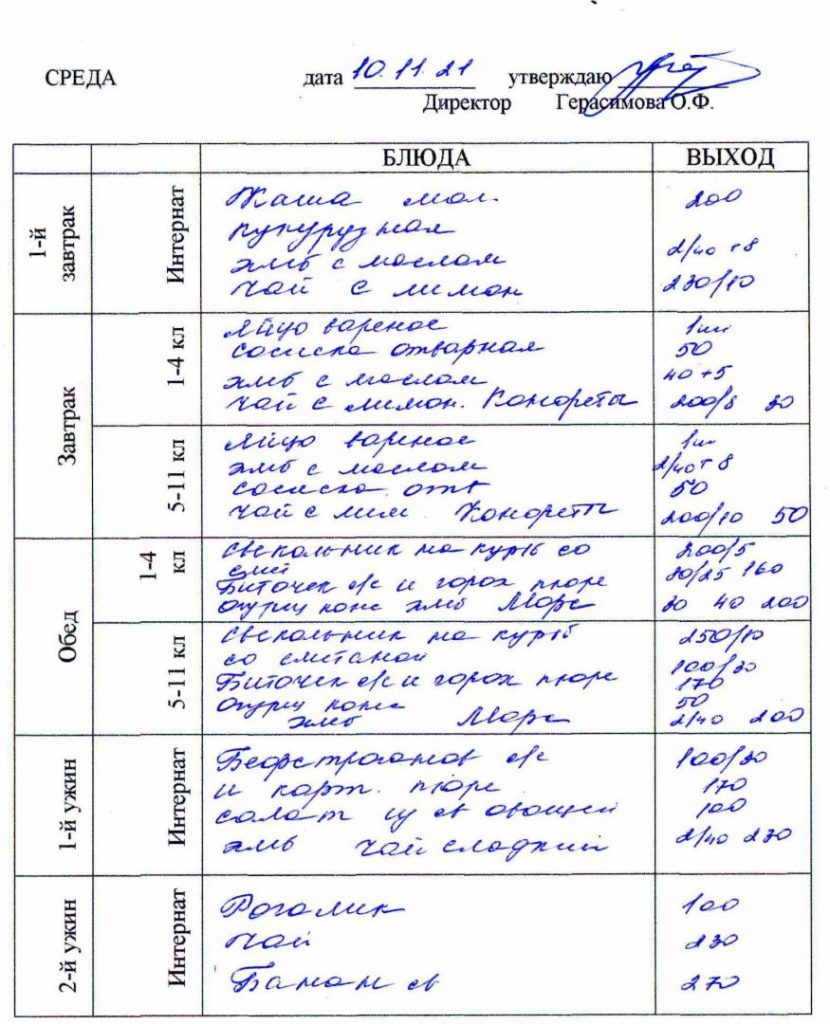 СРЕДА дата 10.11.21 утверждаю
Директор Герасимова О.Ф.
БЛЮДА ВЫХОД
1-й завтрак Интернат
Каша мол. 200
кукурузная
хлеб с маслом 2/40 +8
чай с лимон 230/10
Завтрак 1-4 кл
Яйцо вареное 1шт
сосиска отварная 50
хлеб с маслом 40+5
чай с лимон. Конфеты 200/8 30
5-11 кл
Яйцо вареное 1шт
хлеб с маслом 2/40+8
сосиска отв 50
чай с лим. Конфеты 200/10 50
Обед 1-4 кл
Свекольник на кур б со 200/5
смет
Биточек м/с и горох пюре 80/25 160
огурец конс хлеб Морс 30 40 200
5-11 кл
Свекольник на кур б 250/10
со сметаной
Биточек м/с и горох пюре 100/30
170
огурец конс 50
хлеб Морс 2/40 200
1-й ужин Интернат
Бефстроганов м/с 100/30
и карт. пюре 170
салат из св овощей 100
хлеб чай сладкий 2/40 230
2-й ужин Интернат
Рогалик 100
Чай 230
Банан св 270